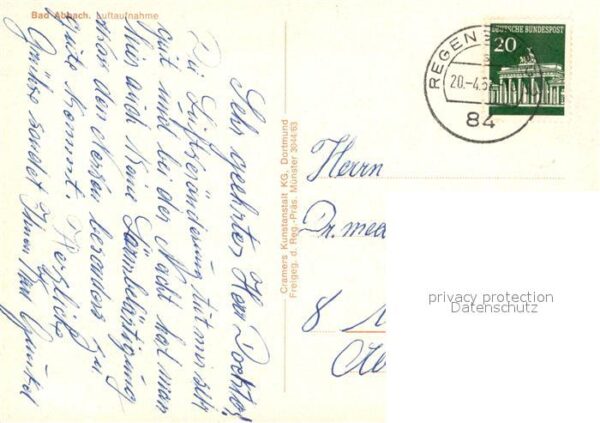 Bad Abbach. Luftaufnahme
Sehr geehrter Herr Doctor!
Die Luftveränderung tut mir sehr
gut und bei der Nacht hat man
hier auch keine Lärmbelästigung
was den Nerven besonders zu
gute kommt. Herzliche
Grüße sendet Ihnen Ihr
Cramers Kunstanstalt KG, Dortmund
Freigeg. d. Reg.-Präs. Münster 3044/63
REGEN
20.-4.6
84
DEUTSCHE BUNDESPOST
20
Herrn
Dr. med
8
privacy protection
Datenschutz